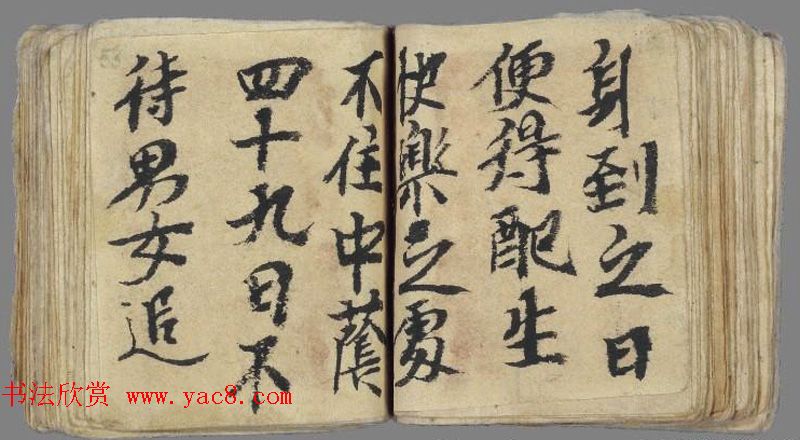 身到之日
便得配生
快樂之處
不住中蔭
四十九日不
待男女追
书法欣赏 www.yac8.com